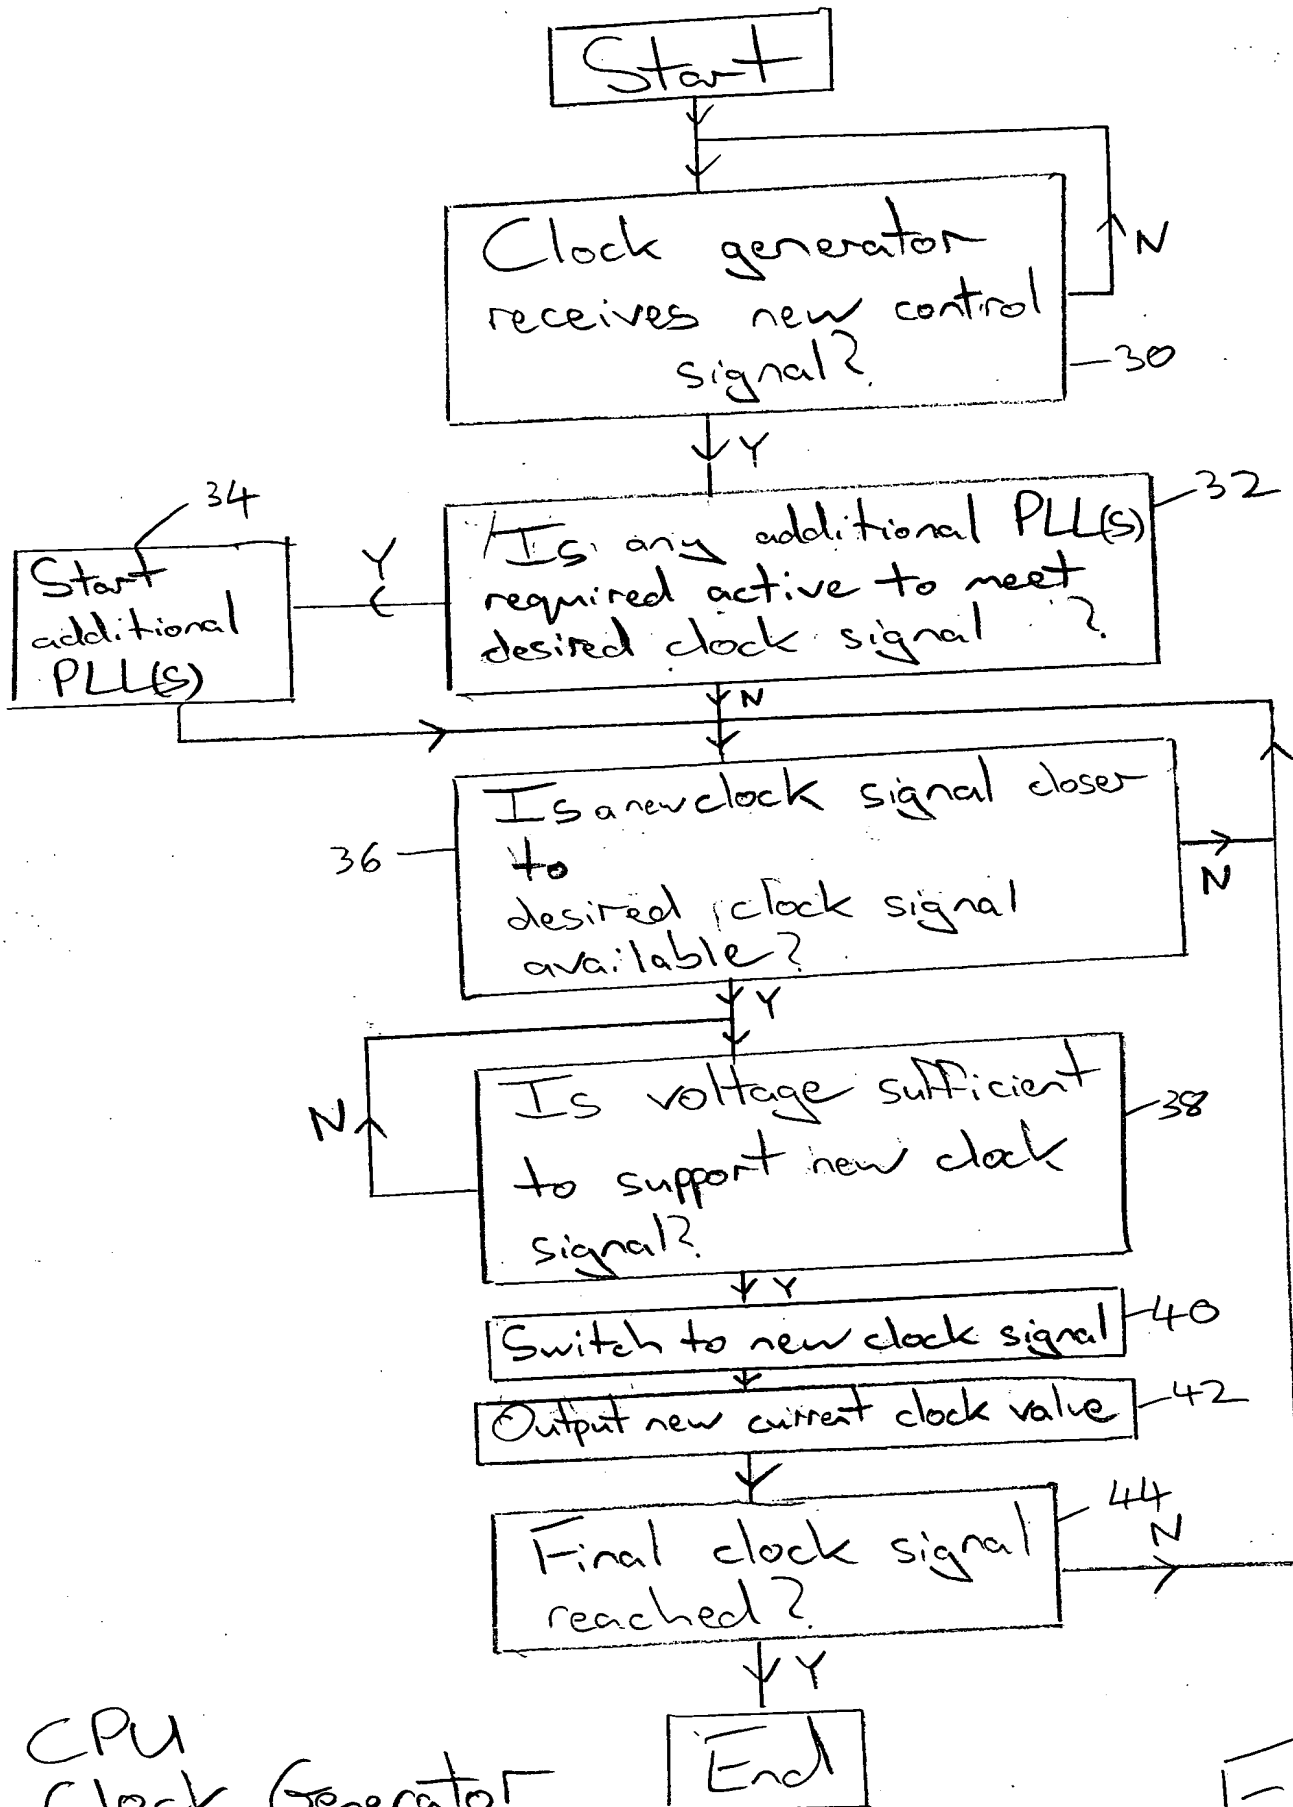 Start
Clock generator
receives new control
signal?
N
30
Y
34
Start
additional
PLL(s)
Y
Is any additional PLL(s)
required active to meet
desired clock signal ?
32
N
Is a new clock signal closer
to
desired clock signal
available?
36
N
Y
Is voltage sufficient
to support new clock
signal?
N
38
Y
Switch to new clock signal
40
Output new current clock value
42
Final clock signal
reached?
44
N
Y
End
CPU
Clock Generator